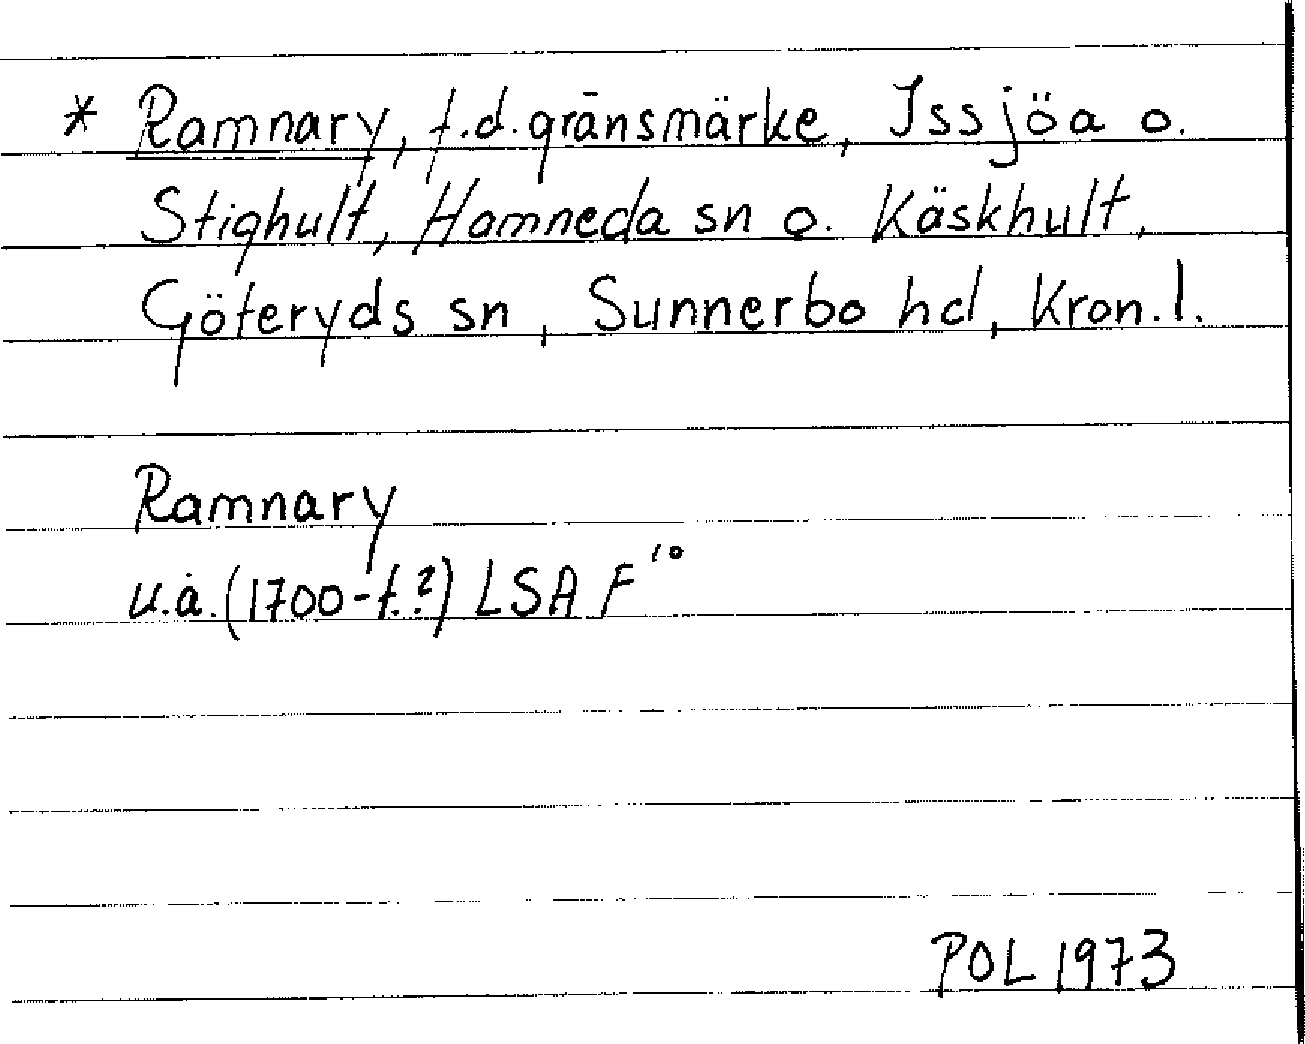 * Ramnary, f.d. gränsmärke, Issjöa o.
Stighult, Hamneda sn o. Käskhult,
Göteryds sn, Sunnerbo hd, Kron. l.
Ramnary
u.å. (1700-t.?) LSA F¹⁰
POL 1973